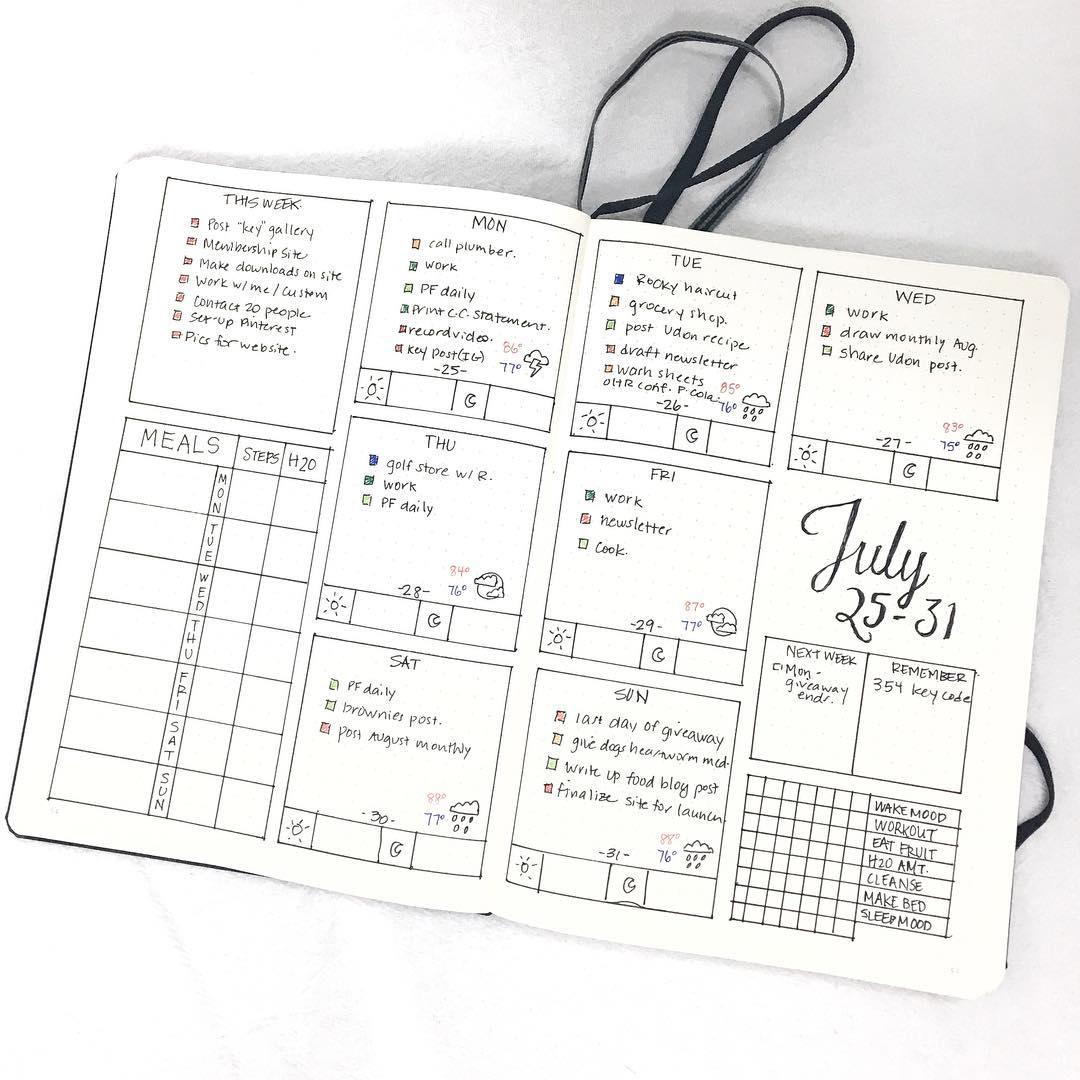 THIS WEEK.
Post "key" gallery
Membership site
Make downloads on site
Work w/me / custom
Contact 20 people
Set-up Pinterest
Pics for website.
MON
call plumber.
work
PF daily
Print C.C. Statement.
record video.
key post (IG)
86°
77°
-25-
TUE
Rocky haircut
grocery shop.
post Udon recipe
draft newsletter
wash sheets
conf. P. Cola.
85°
76°
-26-
WED
work
draw monthly Aug.
share Udon post.
83°
75°
-27-
MEALS
STEPS
H20
MON
TUE
WED
THU
FRI
SAT
SUN
THU
golf store w/ R.
work
PF daily
84°
76°
-28-
FRI
work
newsletter
cook.
87°
77°
-29-
July
25-31
SAT
PF daily
brownies post.
post August monthly
88°
77°
-30-
SUN
last day of giveaway
give dogs heartworm med.
write up food blog post
finalize site for launch
88°
76°
-31-
NEXT WEEK
Mon -
giveaway
ends.
REMEMBER
354 key code
WAKE MOOD
WORKOUT
EAT FRUIT
H20 AMT.
CLEANSE
MAKE BED
SLEEP MOOD